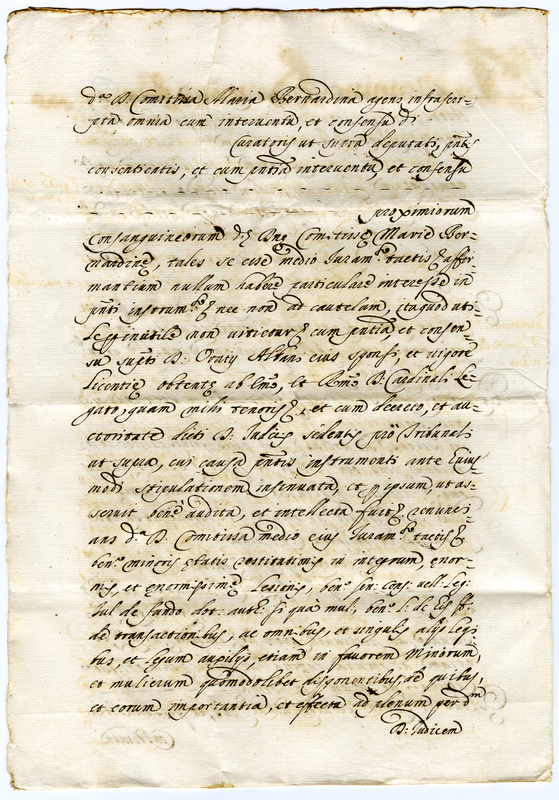 dᵃ D. Comitissa Maria Bernardina agens infrascri-
pta omnia cum interventu, et consensu di
Curatoris ut supra deputati, pntis
consentientis, et cum pntia interventu, et consensu
proximiorum
Consanguineorum d. Dnę Comitissę Marię Ber-
nardinę, tales se esse medio Juramto tactis affir-
mantium nullum habere particulare interesse in
pnti instrumto nec non ad cautelam, itaquod uti-
le p inutile non vitietur cum pntia, et consen-
su supti D. Oratij Altani eius sponsi, et vigore
licentię obtentę ab Emo, et Rmo D. Cardinali Le-
gato, quam mihi et cum decreto, et au-
ctoritate dicti D. Judicis sedentis pro Tribunali
ut supra, cui causa pntis instrumenti ante huius-
modi stipulationem insinuata, et p ipsum, ut as-
seruit bene audita, et intellecta fuit renunci-
ans dᵃ D. Comitissa medio eius Juramto tactis
beno minoris ętatis restitutionis in integrum, enor-
mis, et enormissimę lesionis, beno sen. cons. vell.
Jul. de fundo dot. auth. si qua mul. beno l. 2 C.
de transactionibus, ac omnibus, et singulis alijs legi
bus, et legum auxilijs, etiam in favorem Minorum,
et mulierum quomodolibet disponentibus, de quibus,
et eorum importantia, et effectu ad plenum per dm
D. Judicem